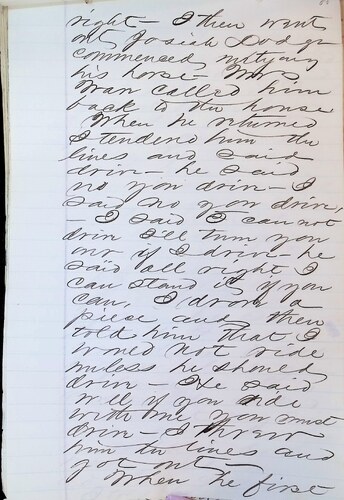 right – I then went
out Josiah Dodge
commenced untying
his horse – Mrs
Wan called him
back to the house
When he returned
I tendered him the
lines and said
driv – he said
no you driv – I
said no you driv,
– I said I can not
driv I'll turn you
over if I driv – he
said all right I
can stand it if you
can, I drove a
piece and then
told him that I
would not ride
unless he should
driv – He said
well if you ride
with me you must
driv – I threw
him the lines and
got out –
When he first